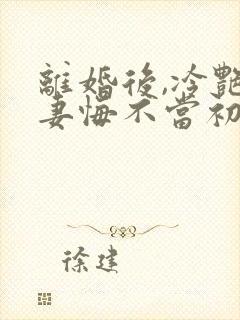 離婚後,冷艷
妻悔不當初
徐建